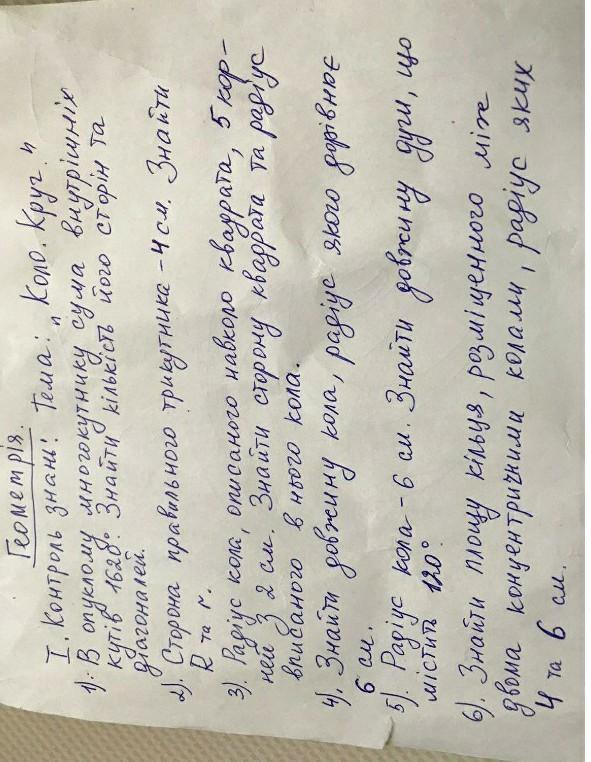 Геометрія.
I. Контроль знань: Тема: "Коло. Круг."
1). В опуклому многокутнику сума внутрішніх
кутів 1620°. Знайти кількість його сторін та
діагоналей.
2). Сторона правильного трикутника - 4 см. Знайти
R та r.
3). Радіус кола, описаного навколо квадрата, 5 кор-
ней з 2 см. Знайти сторону квадрата та радіус
вписаного в нього кола.
4). Знайти довжину кола, радіус якого дорівнює
6 см.
5). Радіус кола - 6 см. Знайти довжину дуги, що
містить 120°
6). Знайти площу кільця, розміщенного між
двома концентричними колами, радіус яких
4 та 6 см.